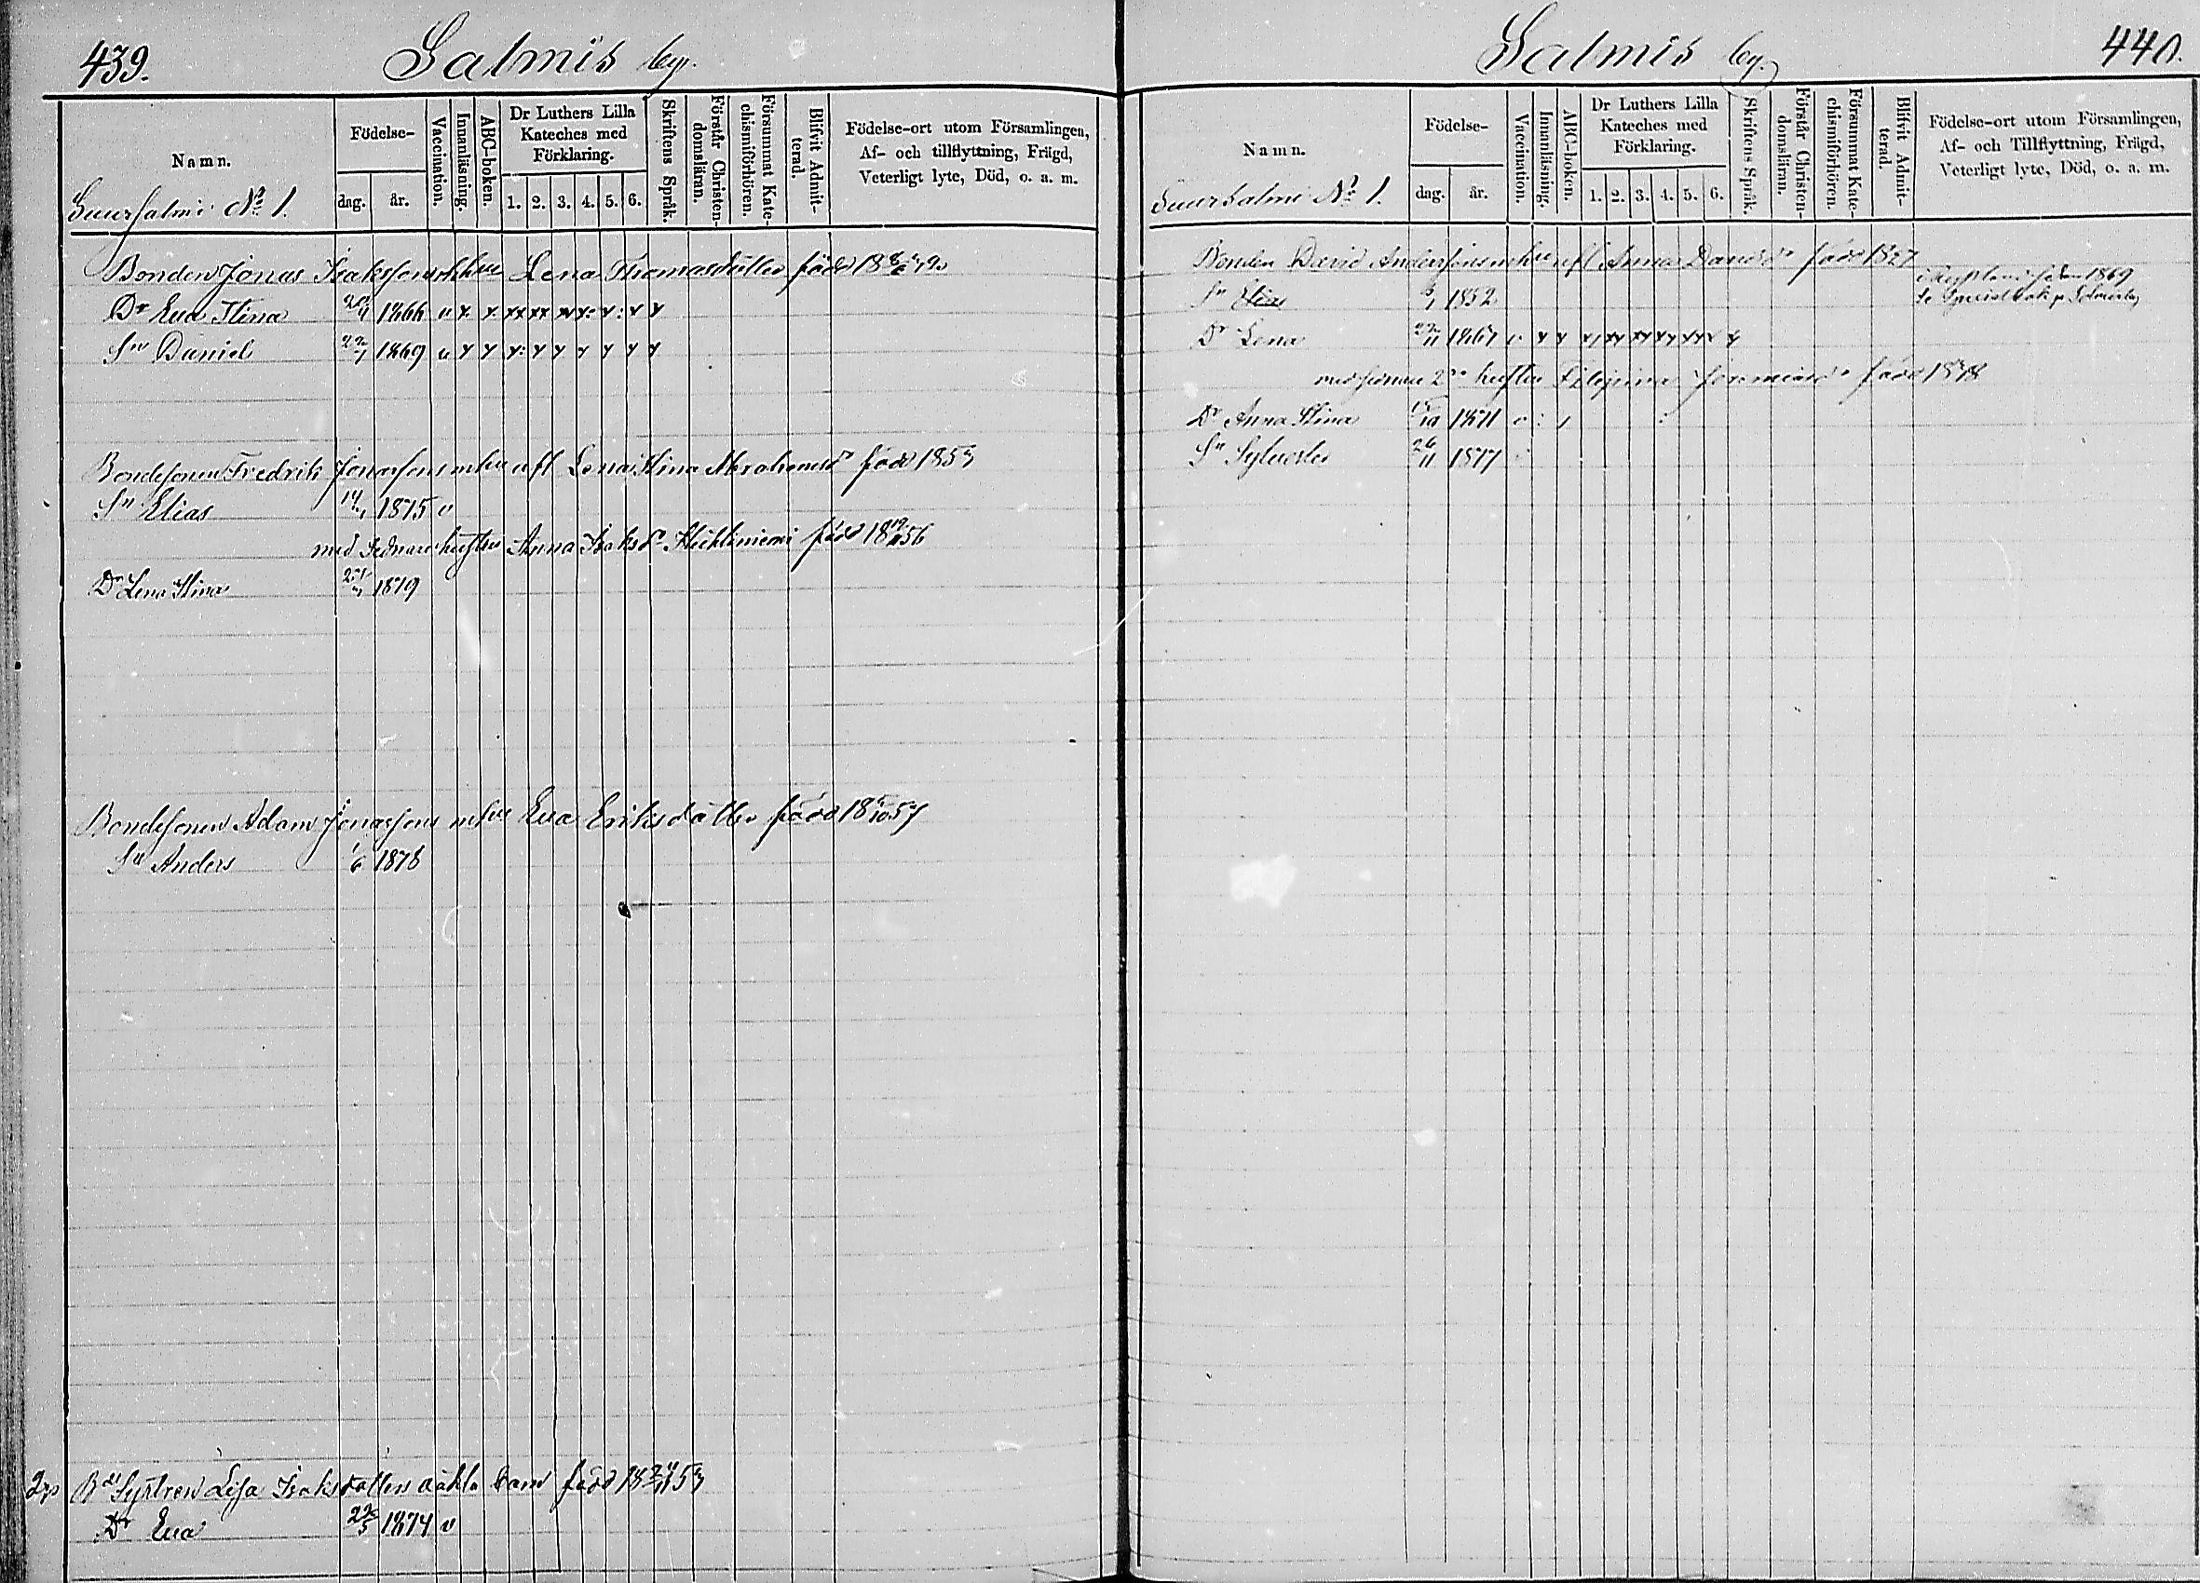 439.
Salmis by.
Namn.
Suursalmi No 1.
Födelse-
dag.
år.
Vaccination.
Innanläsning.
ABC-boken.
Dr Luthers Lilla Kateches med Förklaring.
1. 2. 3. 4. 5. 6.
Skriftens Språk.
Förstår Christendomsläran.
Försummat Katechismiförhören.
Blifvit Admitterad.
Födelse-ort utom Församlingen,
Af- och tillflyttning, Frägd,
Veterligt lyte, Död, o. a. m.
Bonden Jonas Isakssons mhu Lena Thomasdotter född 18
Dr Eva Stina 1866 v
Sn Daniel 22/1 1869 v
Bondesonen Fredrik Jonassons mhu afl Lena Stina Abrahamsdr född 1853
Sn Elias 1875 v
med sednare hustru Anna Isaksdr född 18 56
Dr Lena Stina 1879
Bondesonen Adam Jonassons mhu Eva Eriksdotter född 18 57
Sn Anders 1/6 1878
Bds Systren Lisa Isaksdotters oäkta barn född 18 53
Dr Eva 1874 v
440.
Salmis by.
Namn.
Suursalmi No 1.
Födelse-
dag.
år.
Vaccination.
Innanläsning.
ABC-boken.
Dr Luthers Lilla Kateches med Förklaring.
1. 2. 3. 4. 5. 6.
Skriftens Språk.
Förstår Christendomsläran.
Försummat Katechismiförhören.
Blifvit Admitterad.
Födelse-ort utom Församlingen,
Af- och Tillflyttning, Frägd,
Veterligt lyte, Död, o. a. m.
Bonden David Anderssons mhu afl Anna Davidsdr född 1827
Sn Elias 1852 i Ryssland sedan 1869
Dr Lena 1867 v
med sednare 2dra hustru född 18
Dr Anna Stina 1871
Sn Sylvester 26/11 1877